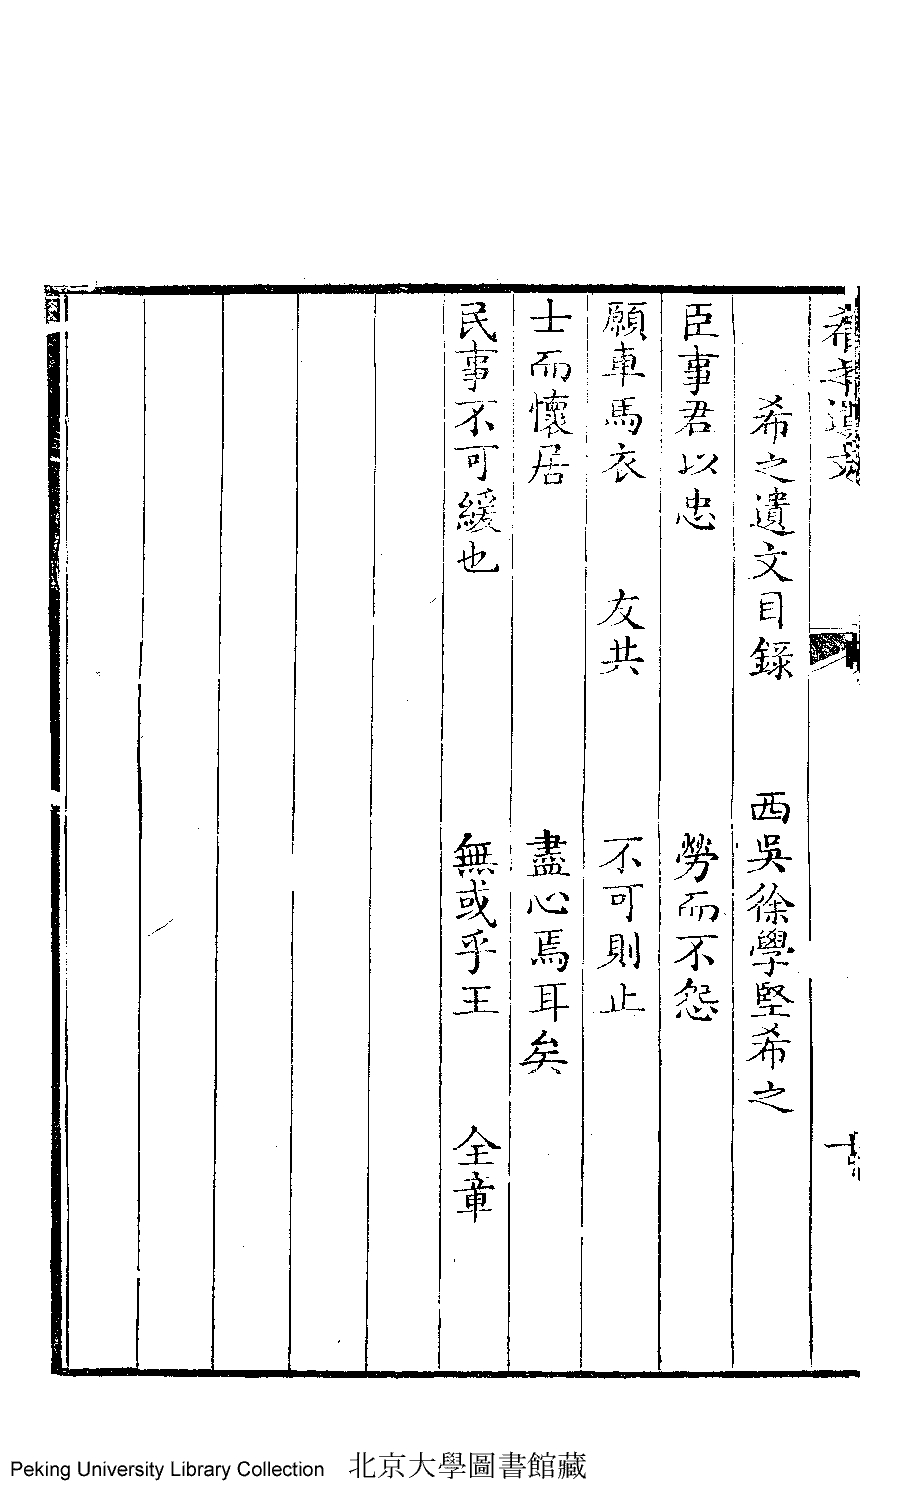 希之遺文
希之遺文目錄　西吳徐學堅希之
臣事君以忠　勞而不怨
願車馬衣　友共　不可則止
士而懷居　盡心焉耳矣
民事不可緩也　無或乎王　全章
Peking University Library Collection 北京大學圖書館藏